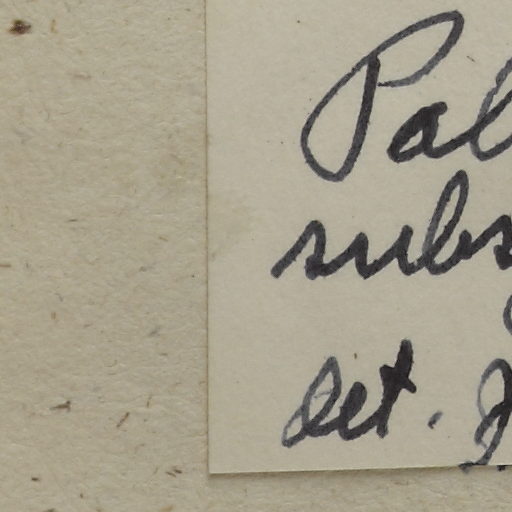 Pal
subs
det. J